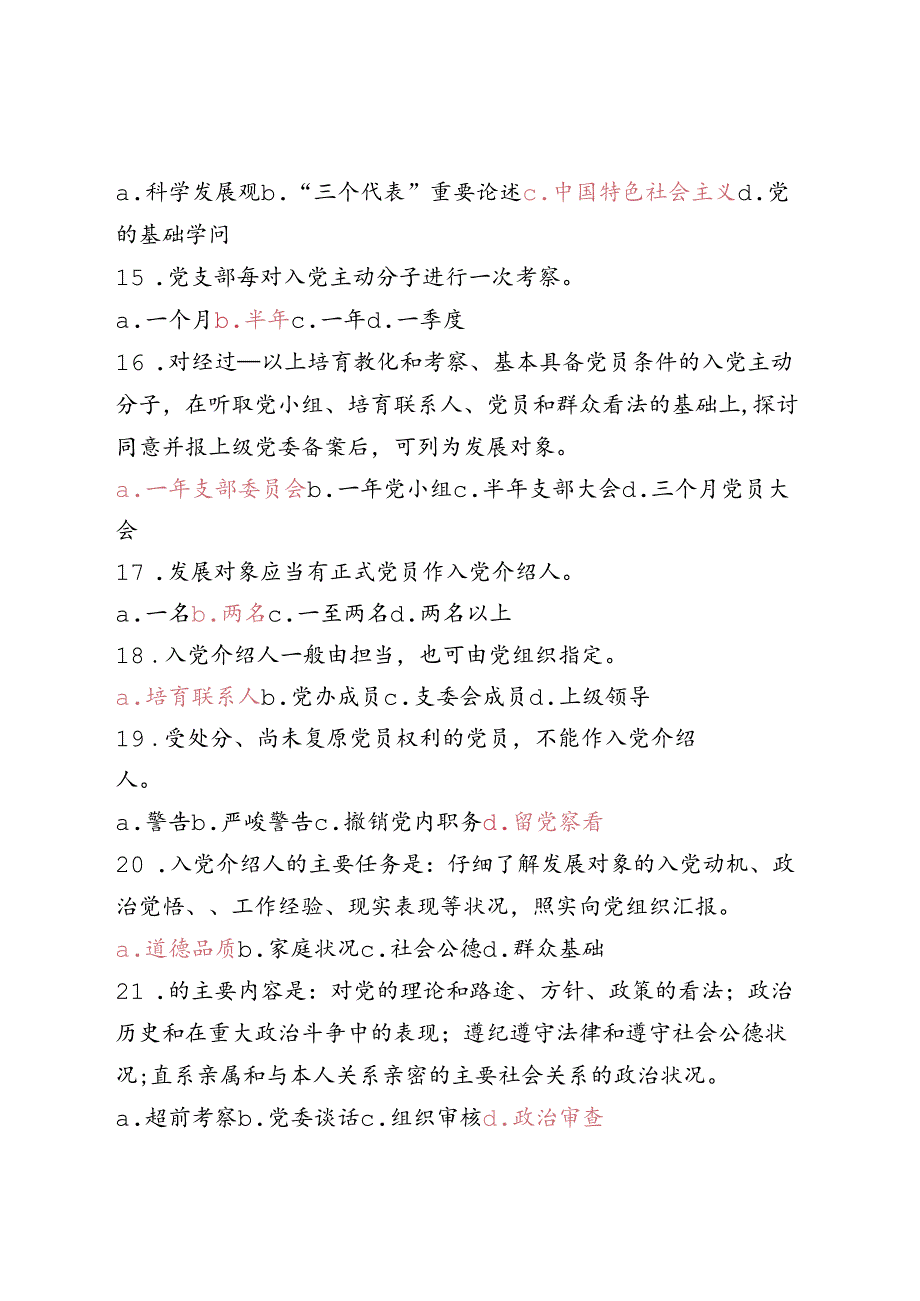 a.科学发展观b.“三个代表”重要论述c.中国特色社会主义d.党
的基础学问
15 .党支部每对入党主动分子进行一次考察。
a.一个月b.半年c.一年d.一季度
16 .对经过一以上培育教化和考察、基本具备党员条件的入党主动
分子，在听取党小组、培育联系人、党员和群众看法的基础上,探讨
同意并报上级党委备案后，可列为发展对象。
a.一年支部委员会b.一年党小组c.半年支部大会d.三个月党员大
会
17 .发展对象应当有正式党员作入党介绍人。
a.一名b.两名c.一至两名d.两名以上
18 .入党介绍人一般由担当，也可由党组织指定。
a.培育联系人b.党办成员c.支委会成员d.上级领导
19 .受处分、尚未复原党员权利的党员，不能作入党介绍
人。
a.警告b.严峻警告c.撤销党内职务d.留党察看
20 .入党介绍人的主要任务是：仔细了解发展对象的入党动机、政
治觉悟、、工作经验、现实表现等状况，照实向党组织汇报。
a.道德品质b.家庭状况c.社会公德d.群众基础
21 .的主要内容是：对党的理论和路途、方针、政策的看法；政治
历史和在重大政治斗争中的表现；遵纪遵守法律和遵守社会公德状
况;直系亲属和与本人关系亲密的主要社会关系的政治状况。
a.超前考察b.党委谈话c.组织审核d.政治审查